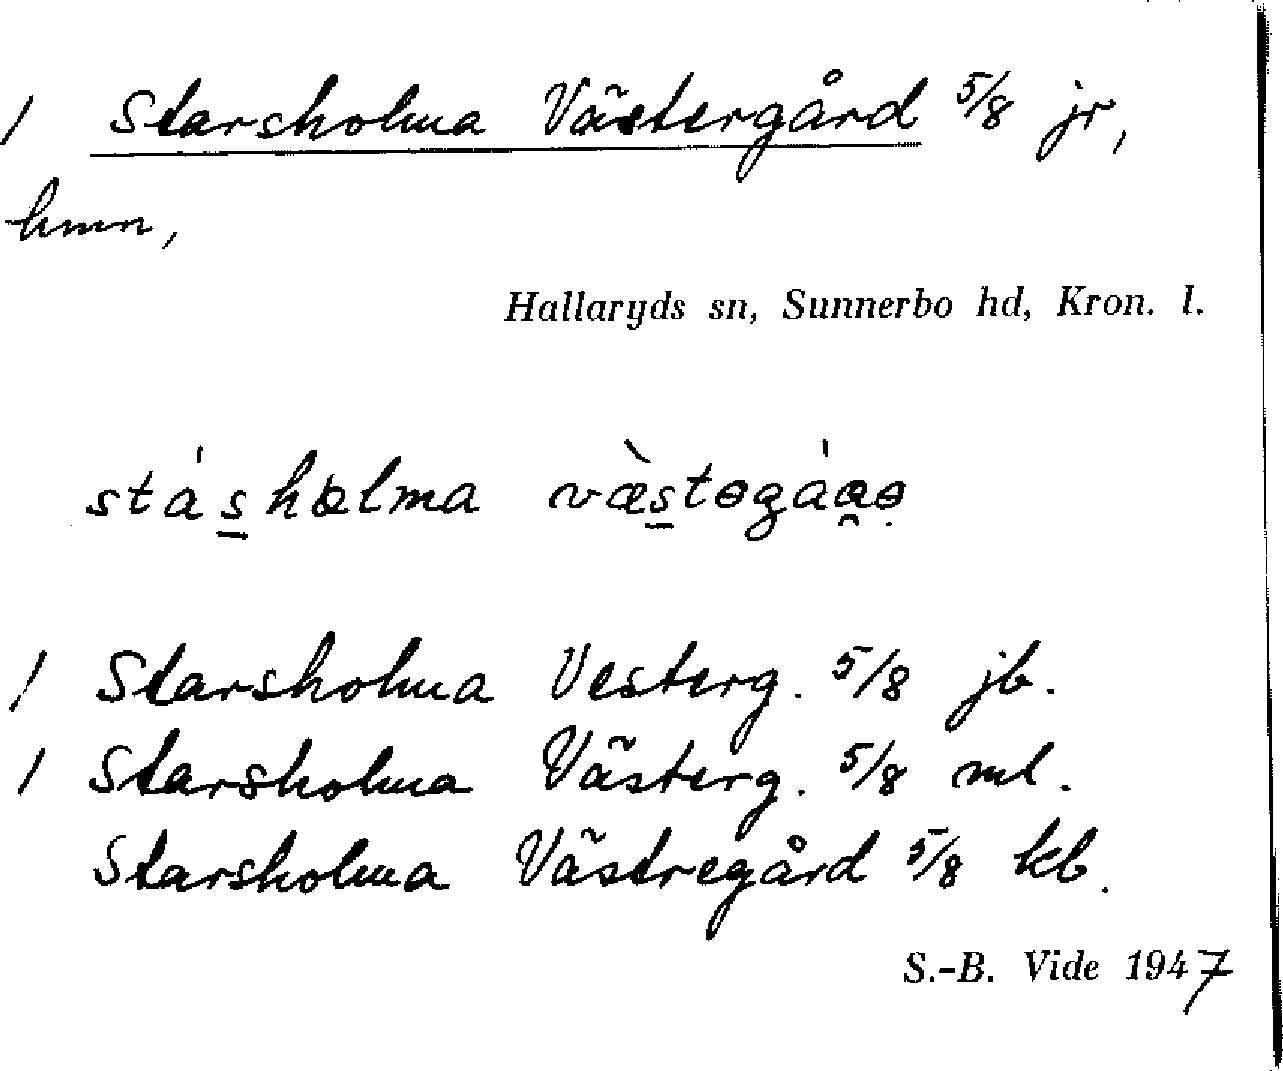 1 Starsholma Västergård 5/8 jr,
hmn,
Hallaryds sn, Sunnerbo hd, Kron. l.
stásholma væ̀stəgáaə
1 Starsholma Vesterg. 5/8 jb.
1 Starsholma Västerg. 5/8 ml.
Starsholma Västregård 5/8 kb.
S.-B. Vide 1947